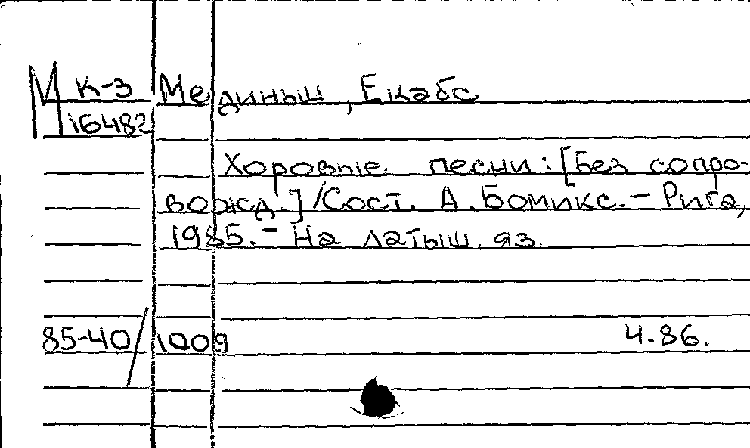 М К-3 Мединьш, Екабс
16482
Хоровые песни: [Без сопро-
вожд.] / Сост. А. Бомикс. - Рига,
1985. - На латыш. яз.
85-40/1009 4-86.